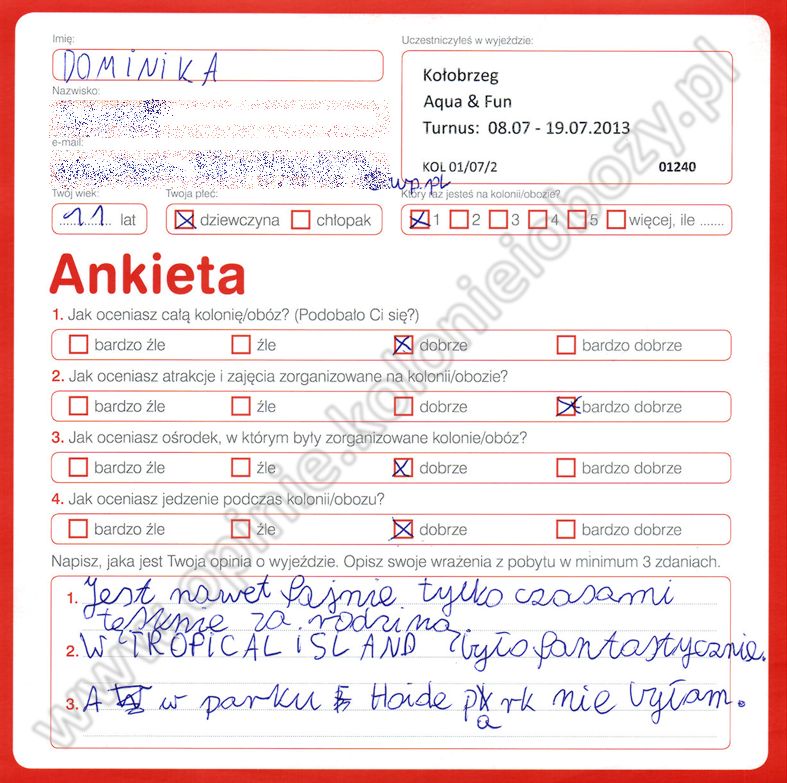 Imię:
DOMINIKA
Nazwisko:
e-mail:
wp.pl
Twój wiek:
11 lat
Twoja płeć:
dziewczyna chłopak
Uczestniczyłeś w wyjeździe:
Kołobrzeg
Aqua & Fun
Turnus: 08.07 - 19.07.2013
KOL 01/07/2 01240
Który raz jesteś na kolonii/obozie?
1 2 3 4 5 więcej, ile .......
Ankieta
1. Jak oceniasz całą kolonię/obóz? (Podobało Ci się?)
bardzo źle źle dobrze bardzo dobrze
2. Jak oceniasz atrakcje i zajęcia zorganizowane na kolonii/obozie?
bardzo źle źle dobrze bardzo dobrze
3. Jak oceniasz ośrodek, w którym były zorganizowane kolonie/obóz?
bardzo źle źle dobrze bardzo dobrze
4. Jak oceniasz jedzenie podczas kolonii/obozu?
bardzo źle źle dobrze bardzo dobrze
Napisz, jaka jest Twoja opinia o wyjeździe. Opisz swoje wrażenia z pobytu w minimum 3 zdaniach.
1. Jest nawet fajnie tylko czasami
tęsknie za rodziną.
2. W TROPICAL ISLAND było fantastycznie.
3. A w parku Haide park nie byłam.
www.opinie.kolonieiobozy.pl